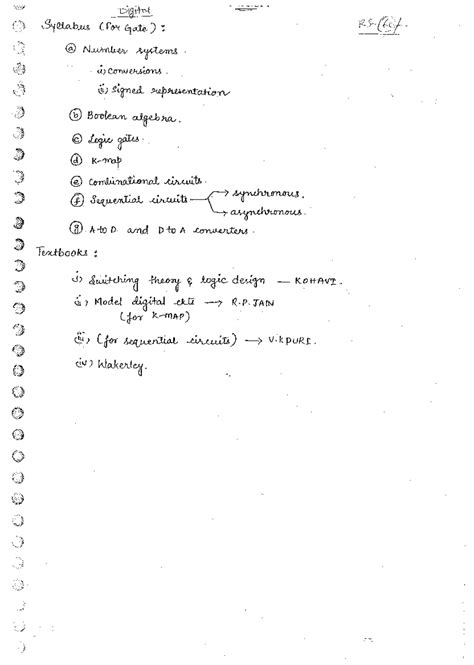 Digital
Syllabus (for Gate) :
RS
ⓐ Number systems.
i) conversions.
ii) Signed representation
ⓑ Boolean algebra.
ⓒ Logic gates.
ⓓ K-map
ⓔ Combinational circuits.
ⓕ Sequential circuits → synchronous.
→ asynchronous.
ⓖ A to D and D to A converters.
Textbooks :
i) Switching theory & logic design — KOHAVI.
ii) Model digital ckts → R.P.JAIN
(for K-MAP)
iii) (for sequential circuits) → V.K PURI.
iv) Wakerley.